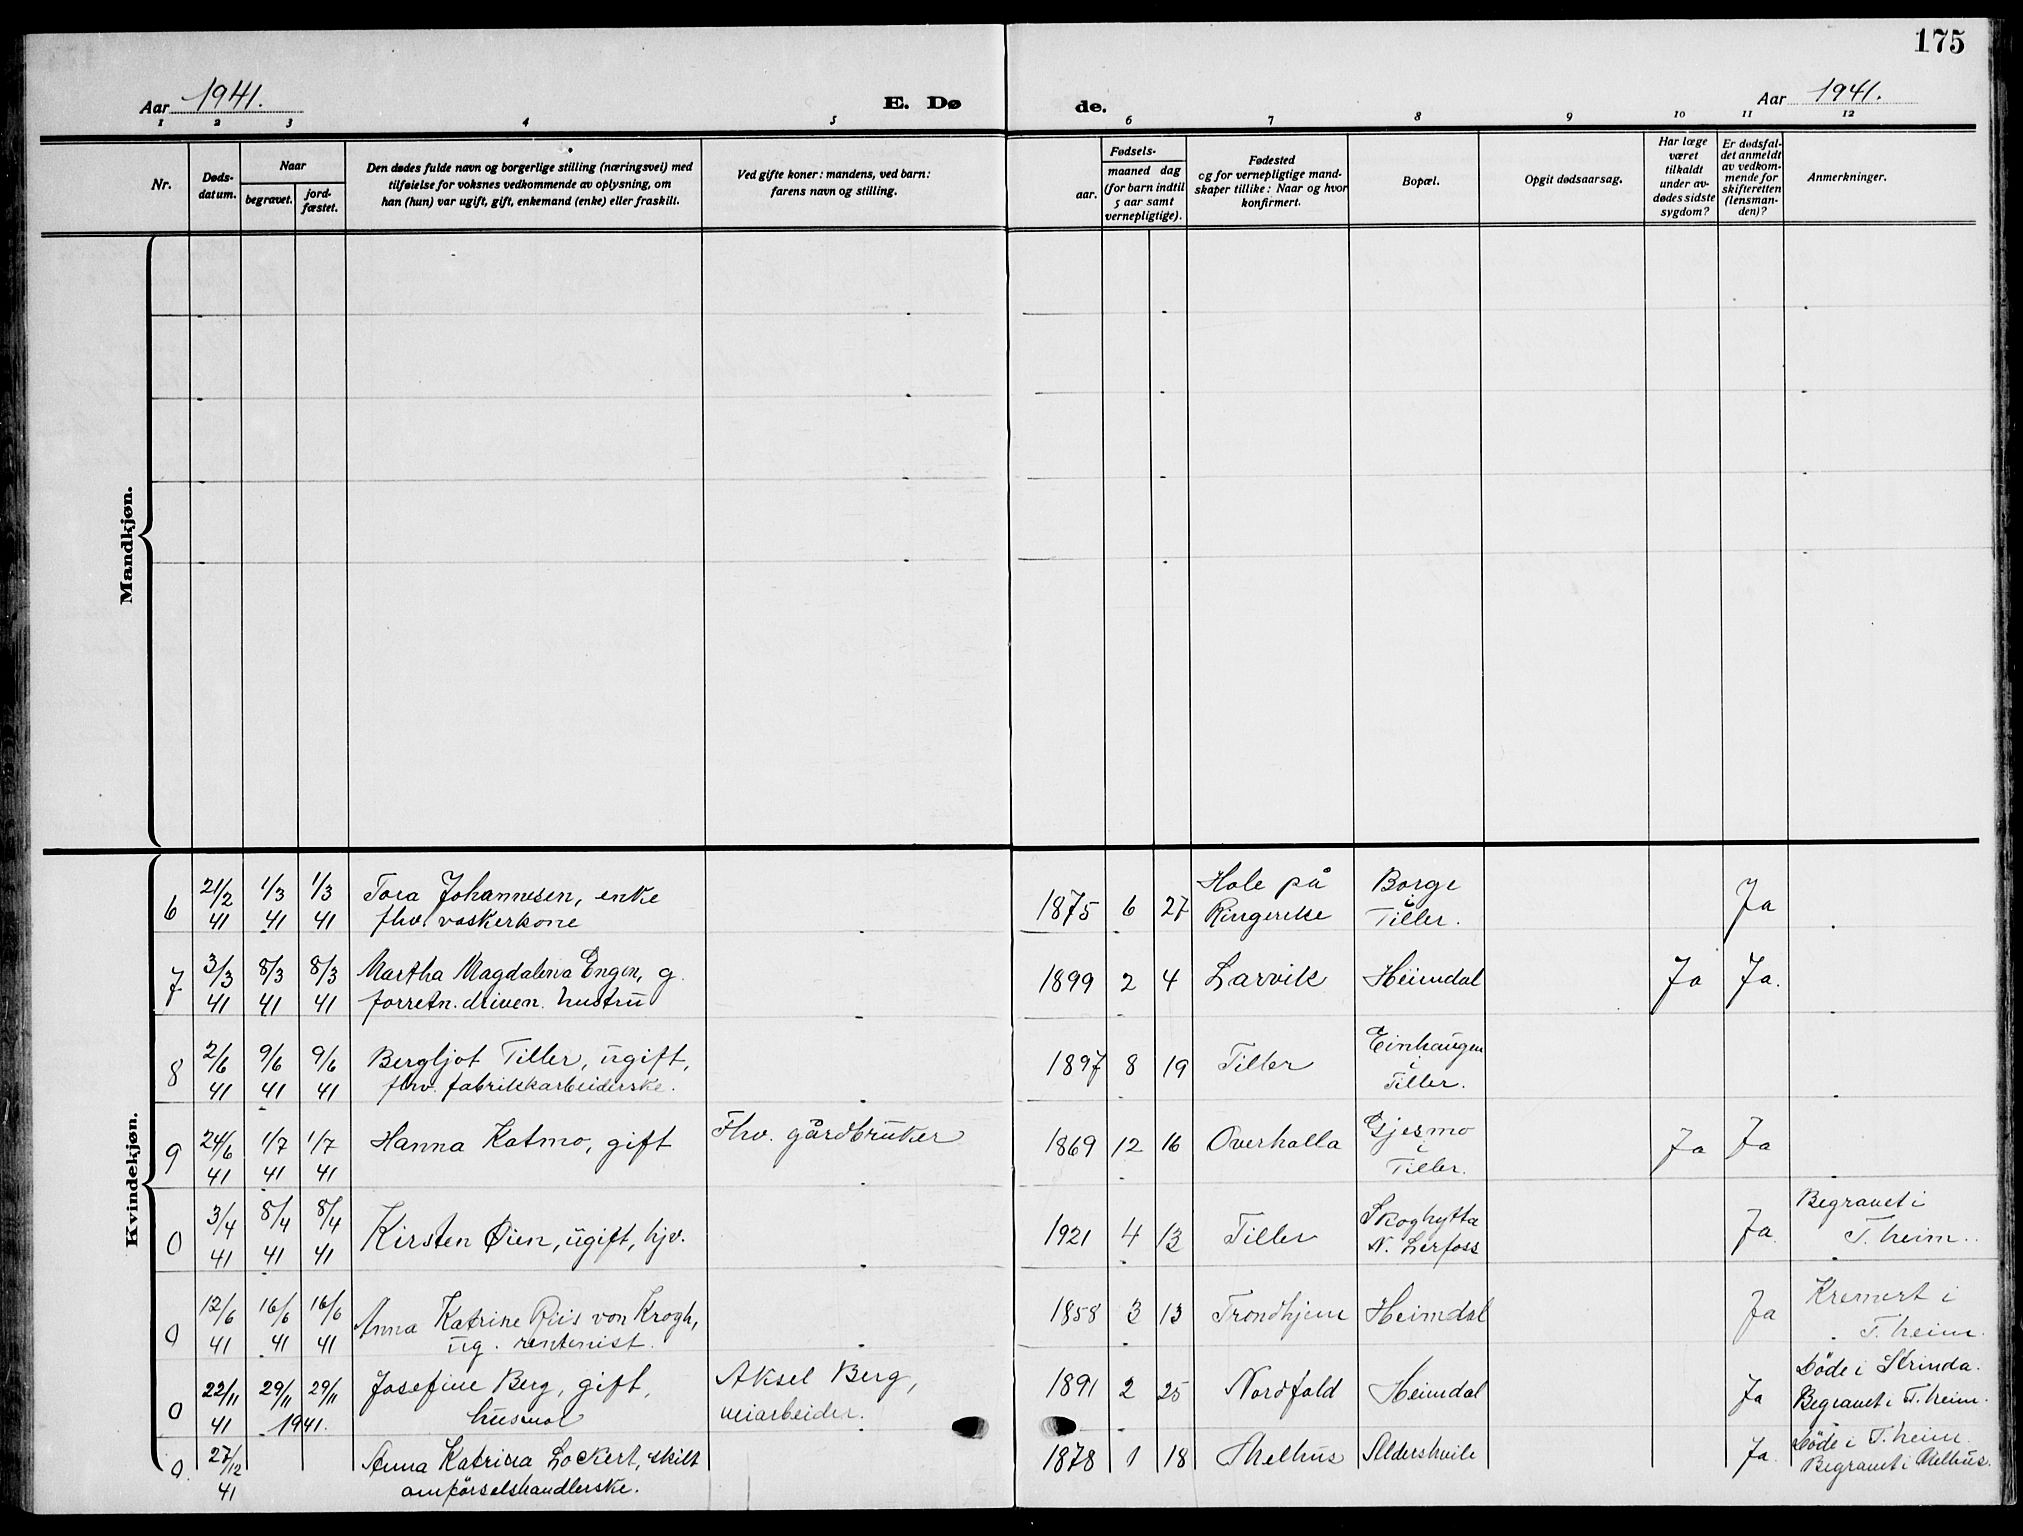 175
Aar 1941.
E. Dø
de.
Aar 1941.
1 2 3 4 5 6 7 8 9 10 11 12
Nr.
Døds-
datum.
Naar
begravet.
jord-
fæstet.
Den dødes fulde navn og borgerlige stilling (næringsvei) med
tilføielse for voksnes vedkommende av oplysning, om
han (hun) var ugift, gift, enkemand (enke) eller fraskilt.
Ved gifte koner: mandens, ved barn:
farens navn og stilling.
Fødsels-
aar.
maaned dag
(for barn indtil
5 aar samt
vernepligtige).
Fødested
og for vernepligtige mand-
skaper tillike: Naar og hvor
konfirmert.
Bopæl.
Opgit dødsaarsag.
Har læge
været
tilkaldt
under av-
dødes sidste
sygdom?
Er dødsfal-
det anmeldt
av vedkom-
mende for
skifteretten
(lensman-
den)?
Anmerkninger.
Mandkjøn.
Kvindekjøn.
6 21/2 1/3 1/3 Tora Johannesen, enke 1875 6 27 Hole på Borge Ja
41 41 41 fhv. vaskerkone Ringerike i Tiller.
7 3/3 8/3 8/3 Martha Magdalena Engen, g. 1899 2 4 Larvik Heimdal Ja Ja.
41 41 41 forretn. driven. hustru
8 2/6 9/6 9/6 Bergljot Tiller, ugift, 1897 8 19 Tiller Einhaugen
41 41 41 fhv. fabrikkarbeiderske. i Tiller.
9 24/6 1/7 1/7 Hanna Katmo, gift Fhv. gårdbruker 1869 12 16 Overhalla Gjesmo Ja Ja
41 41 41 i Tiller.
0 3/4 8/4 8/4 Kirsten Øien, ugift, hjv. 1921 4 13 Tiller Skoghytta Ja. Begravet i
41 41 41 N. Lerfoss T.heim.
0 12/6 16/6 16/6 Anna Katrine Riis von Krogh, 1858 3 13 Trondhjem Heimdal Ja Kremert i
41 41 41 ug. rentenist. T.heim.
0 22/11 29/11 29/11 Josefine Berg, gift, Aksel Berg, 1891 2 25 Nordfold Heimdal Ja Döde i Strinda.
41 1941. husmor veiarbeider. Begravet i T.heim.
0. 27/12 Anna Katrina Lockert, skilt 1878 1 18 Melhus Aldershvile Ja. Döde i T.heim.
41 omförselshandlerske. Begravet i Melhus.